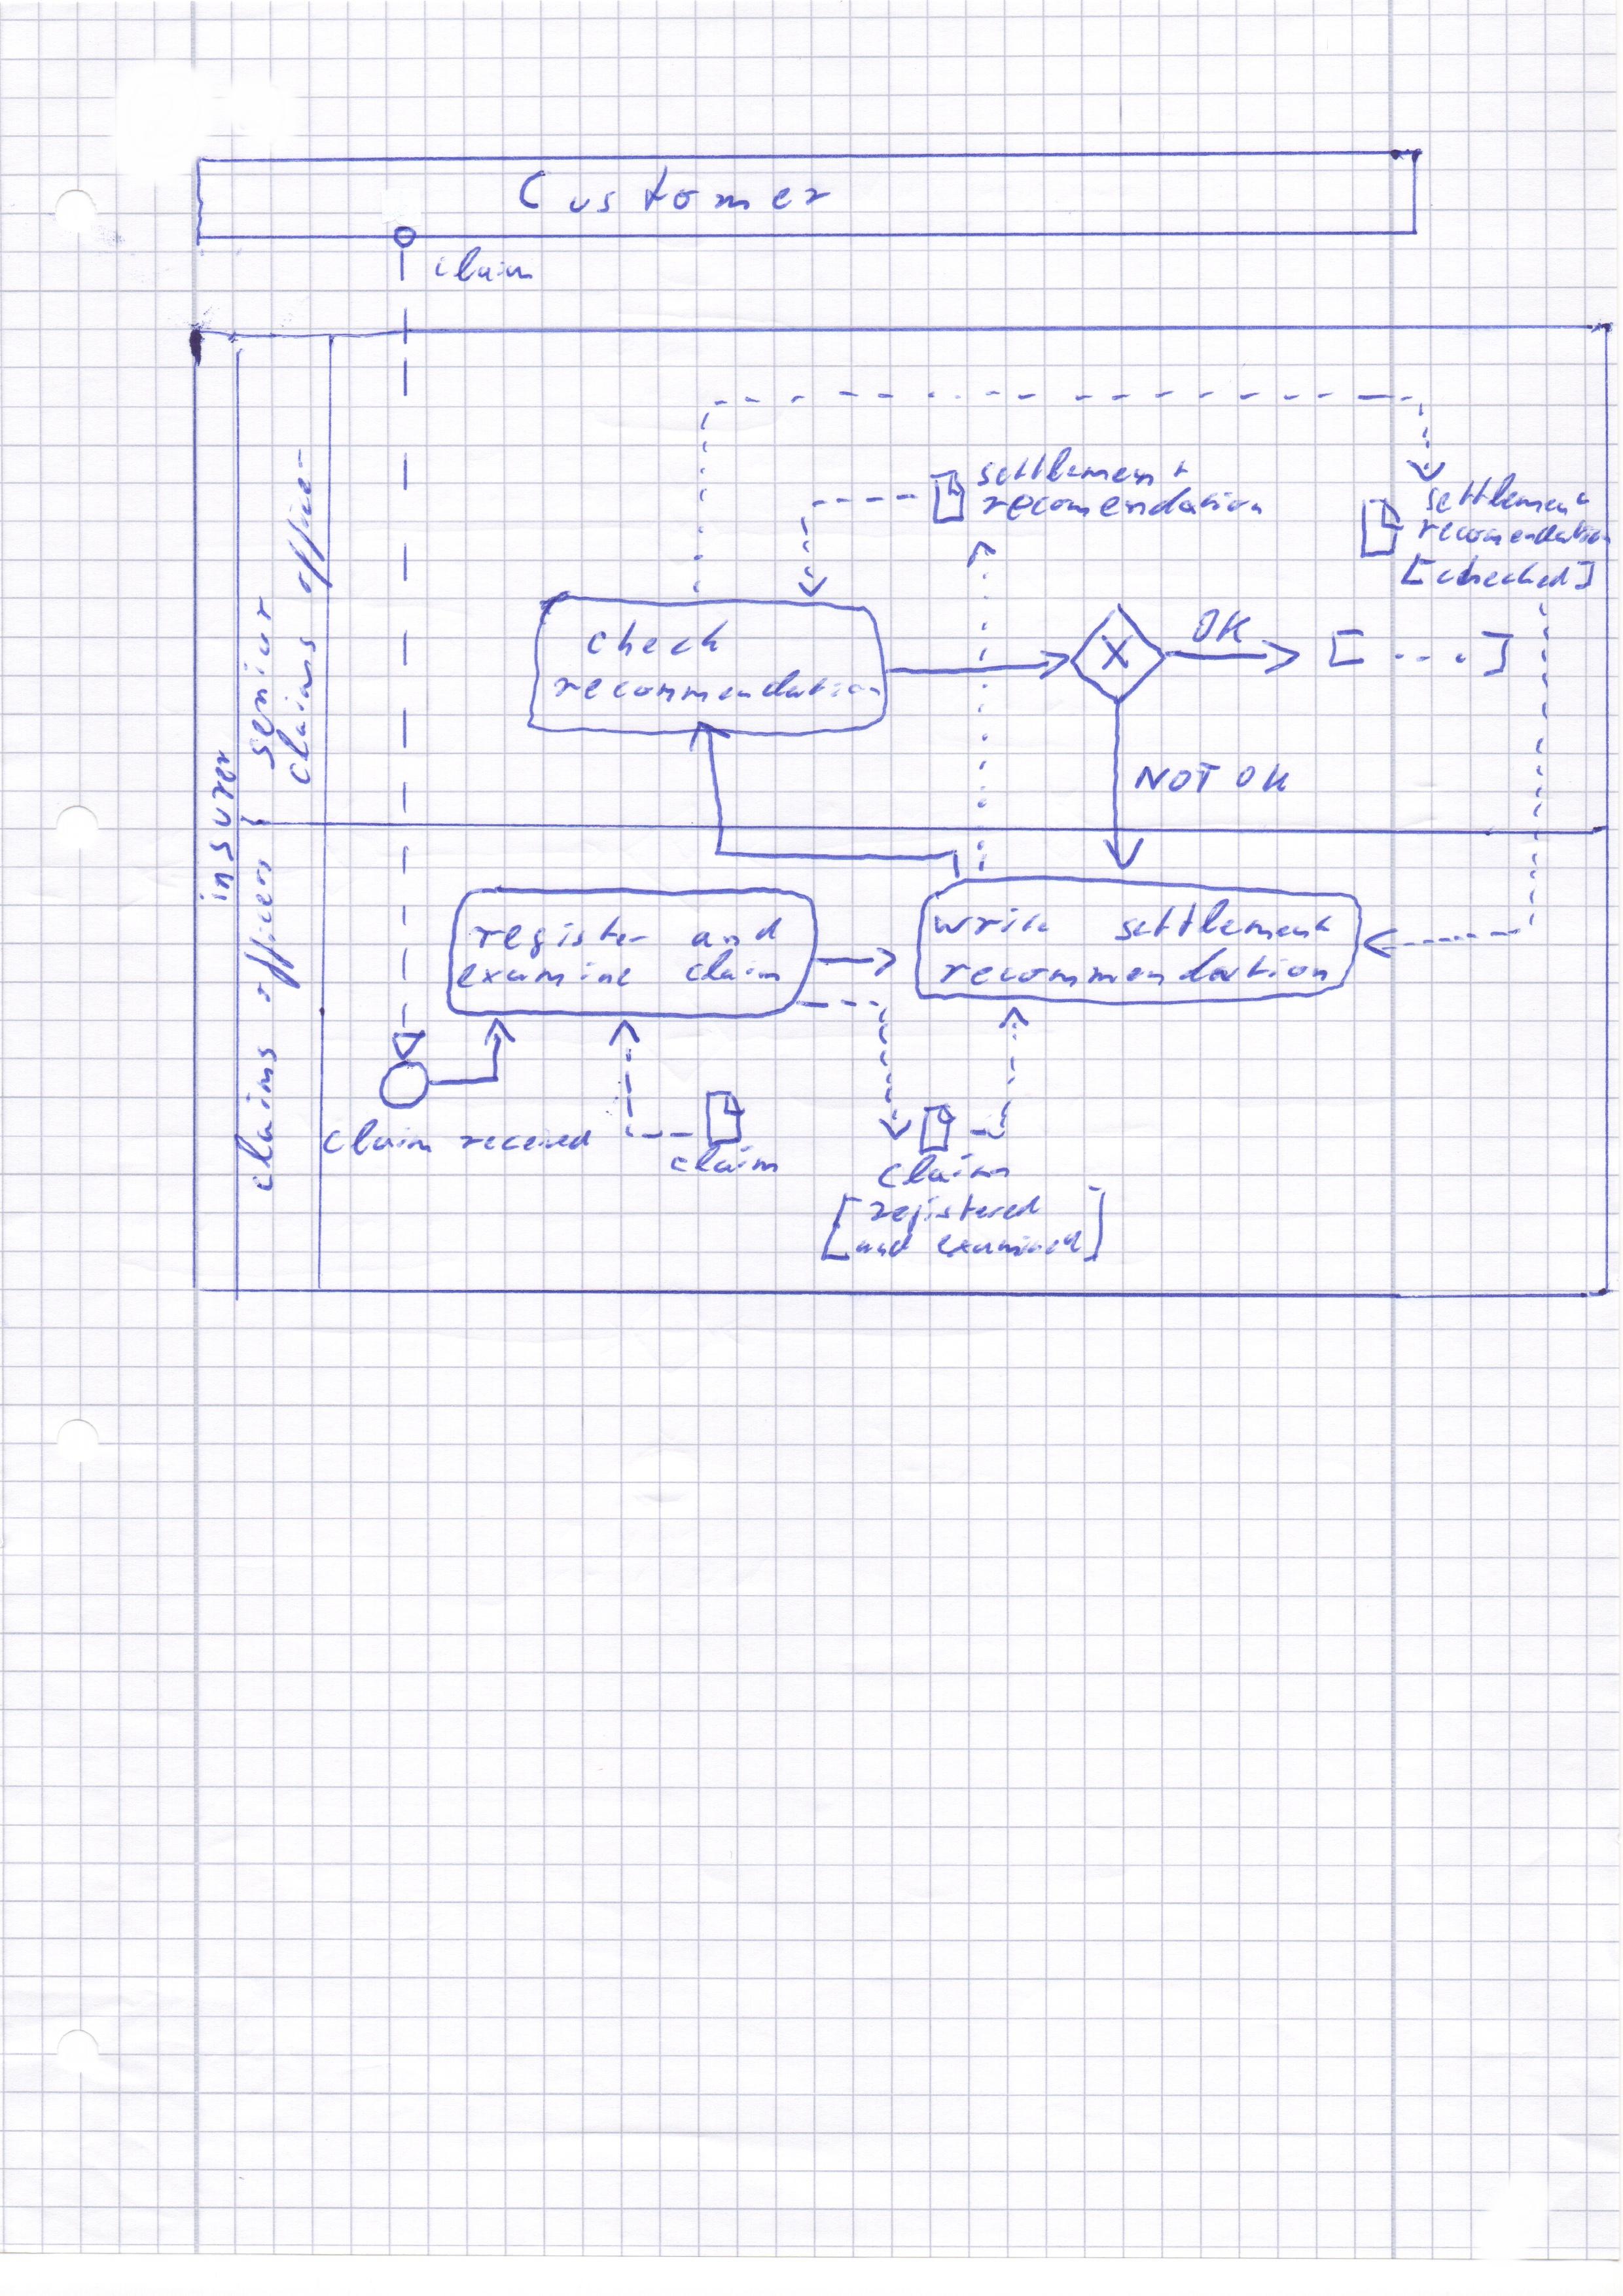 Customer
claim
insurer
senior
claims officer
claims officer
settlement
recomendation
settlement
recomendation
[checked]
check
recommendation
X
OK
[...]
NOT OK
register and
examine claim
write settlement
recommendation
claim received
claim
claim
[registered
and examined]